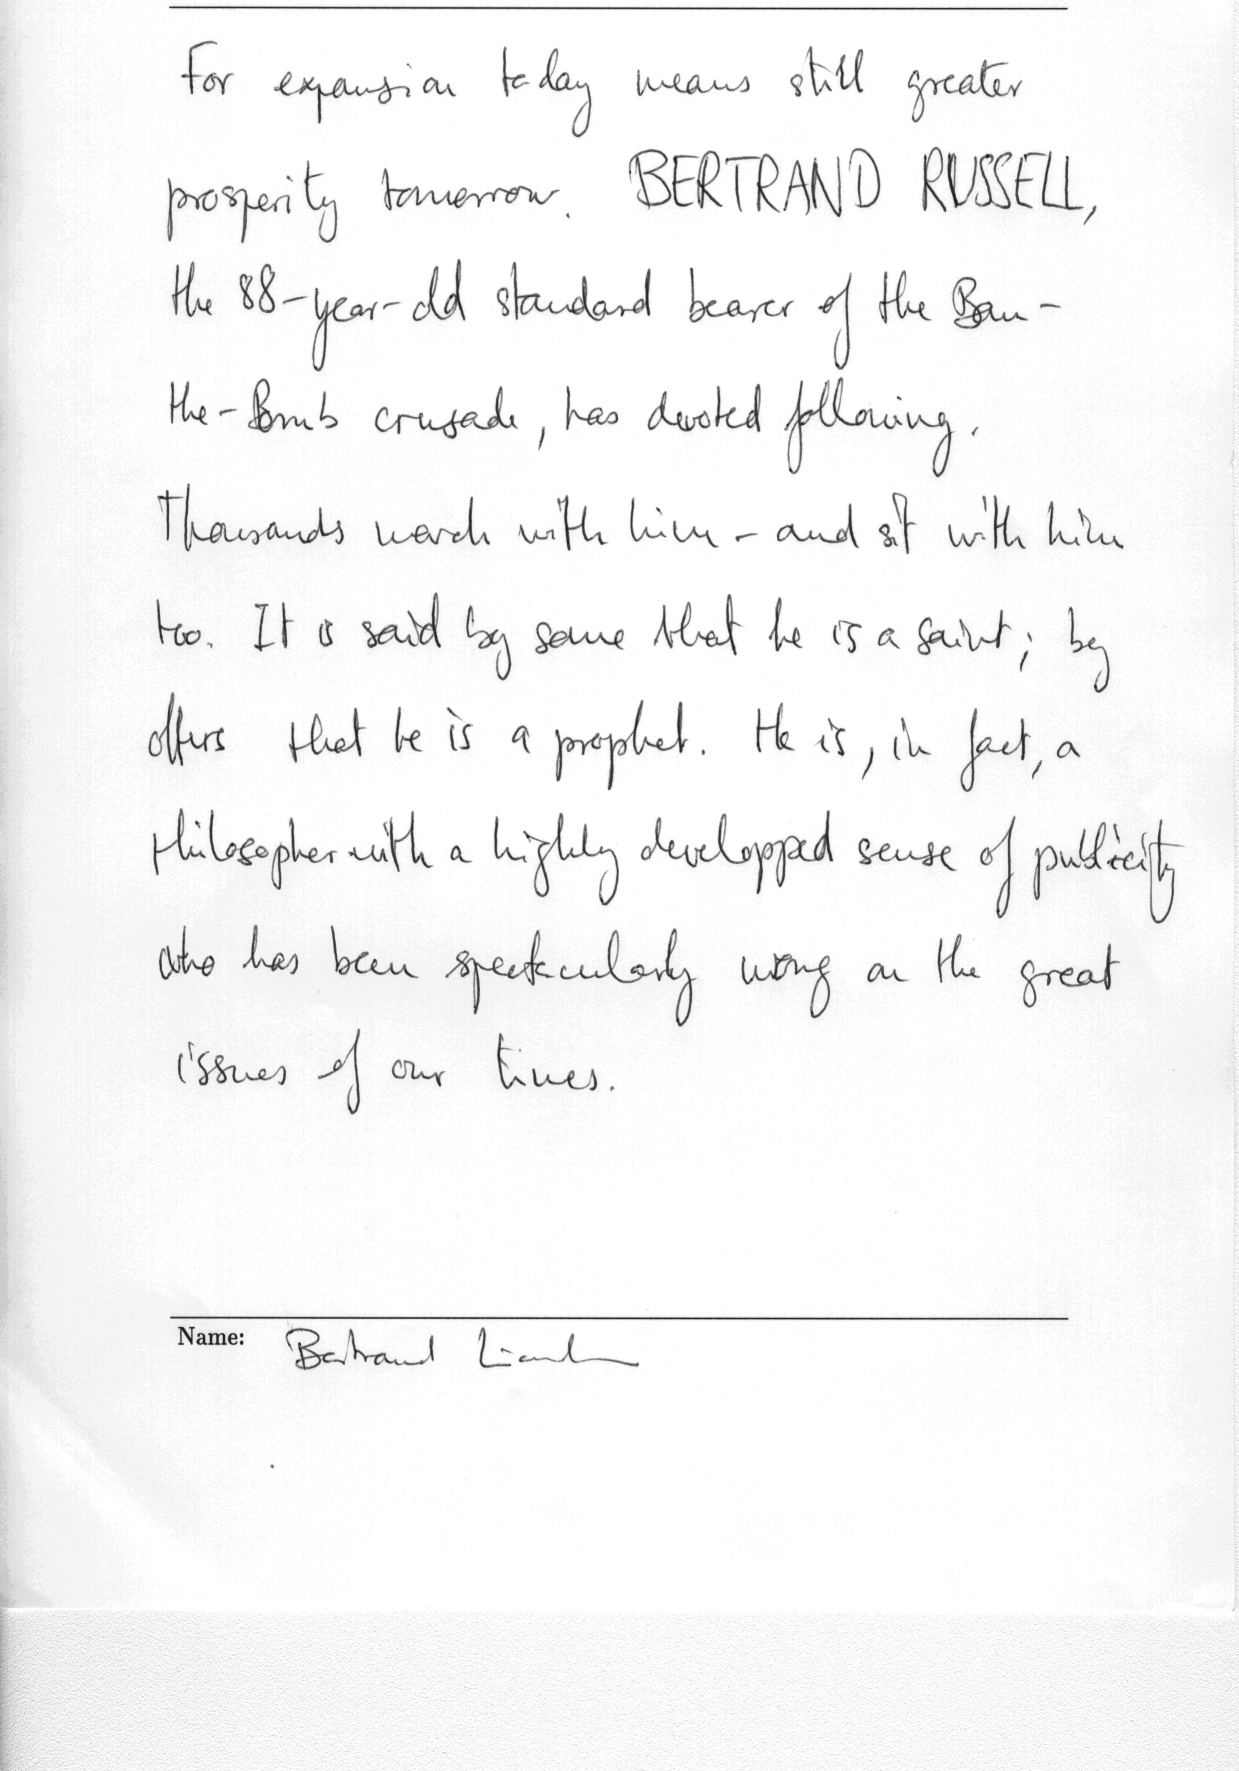 For expansion today means still greater
prosperity tomorrow. BERTRAND RUSSELL,
the 88-year-old standard bearer of the Ban-
the-Bomb crusade, has devoted following.
Thousands march with him - and sit with him
too. It is said by some that he is a saint; by
others that he is a prophet. He is, in fact, a
philosopher with a highly developped sense of publicity
who has been spectacularly wrong on the great
issues of our times.
Name: Bertrand